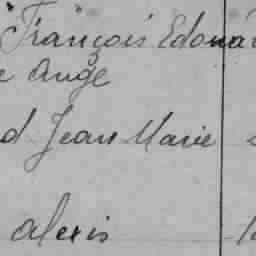 François Edoua
e Ange
d Jean Marie
alexis